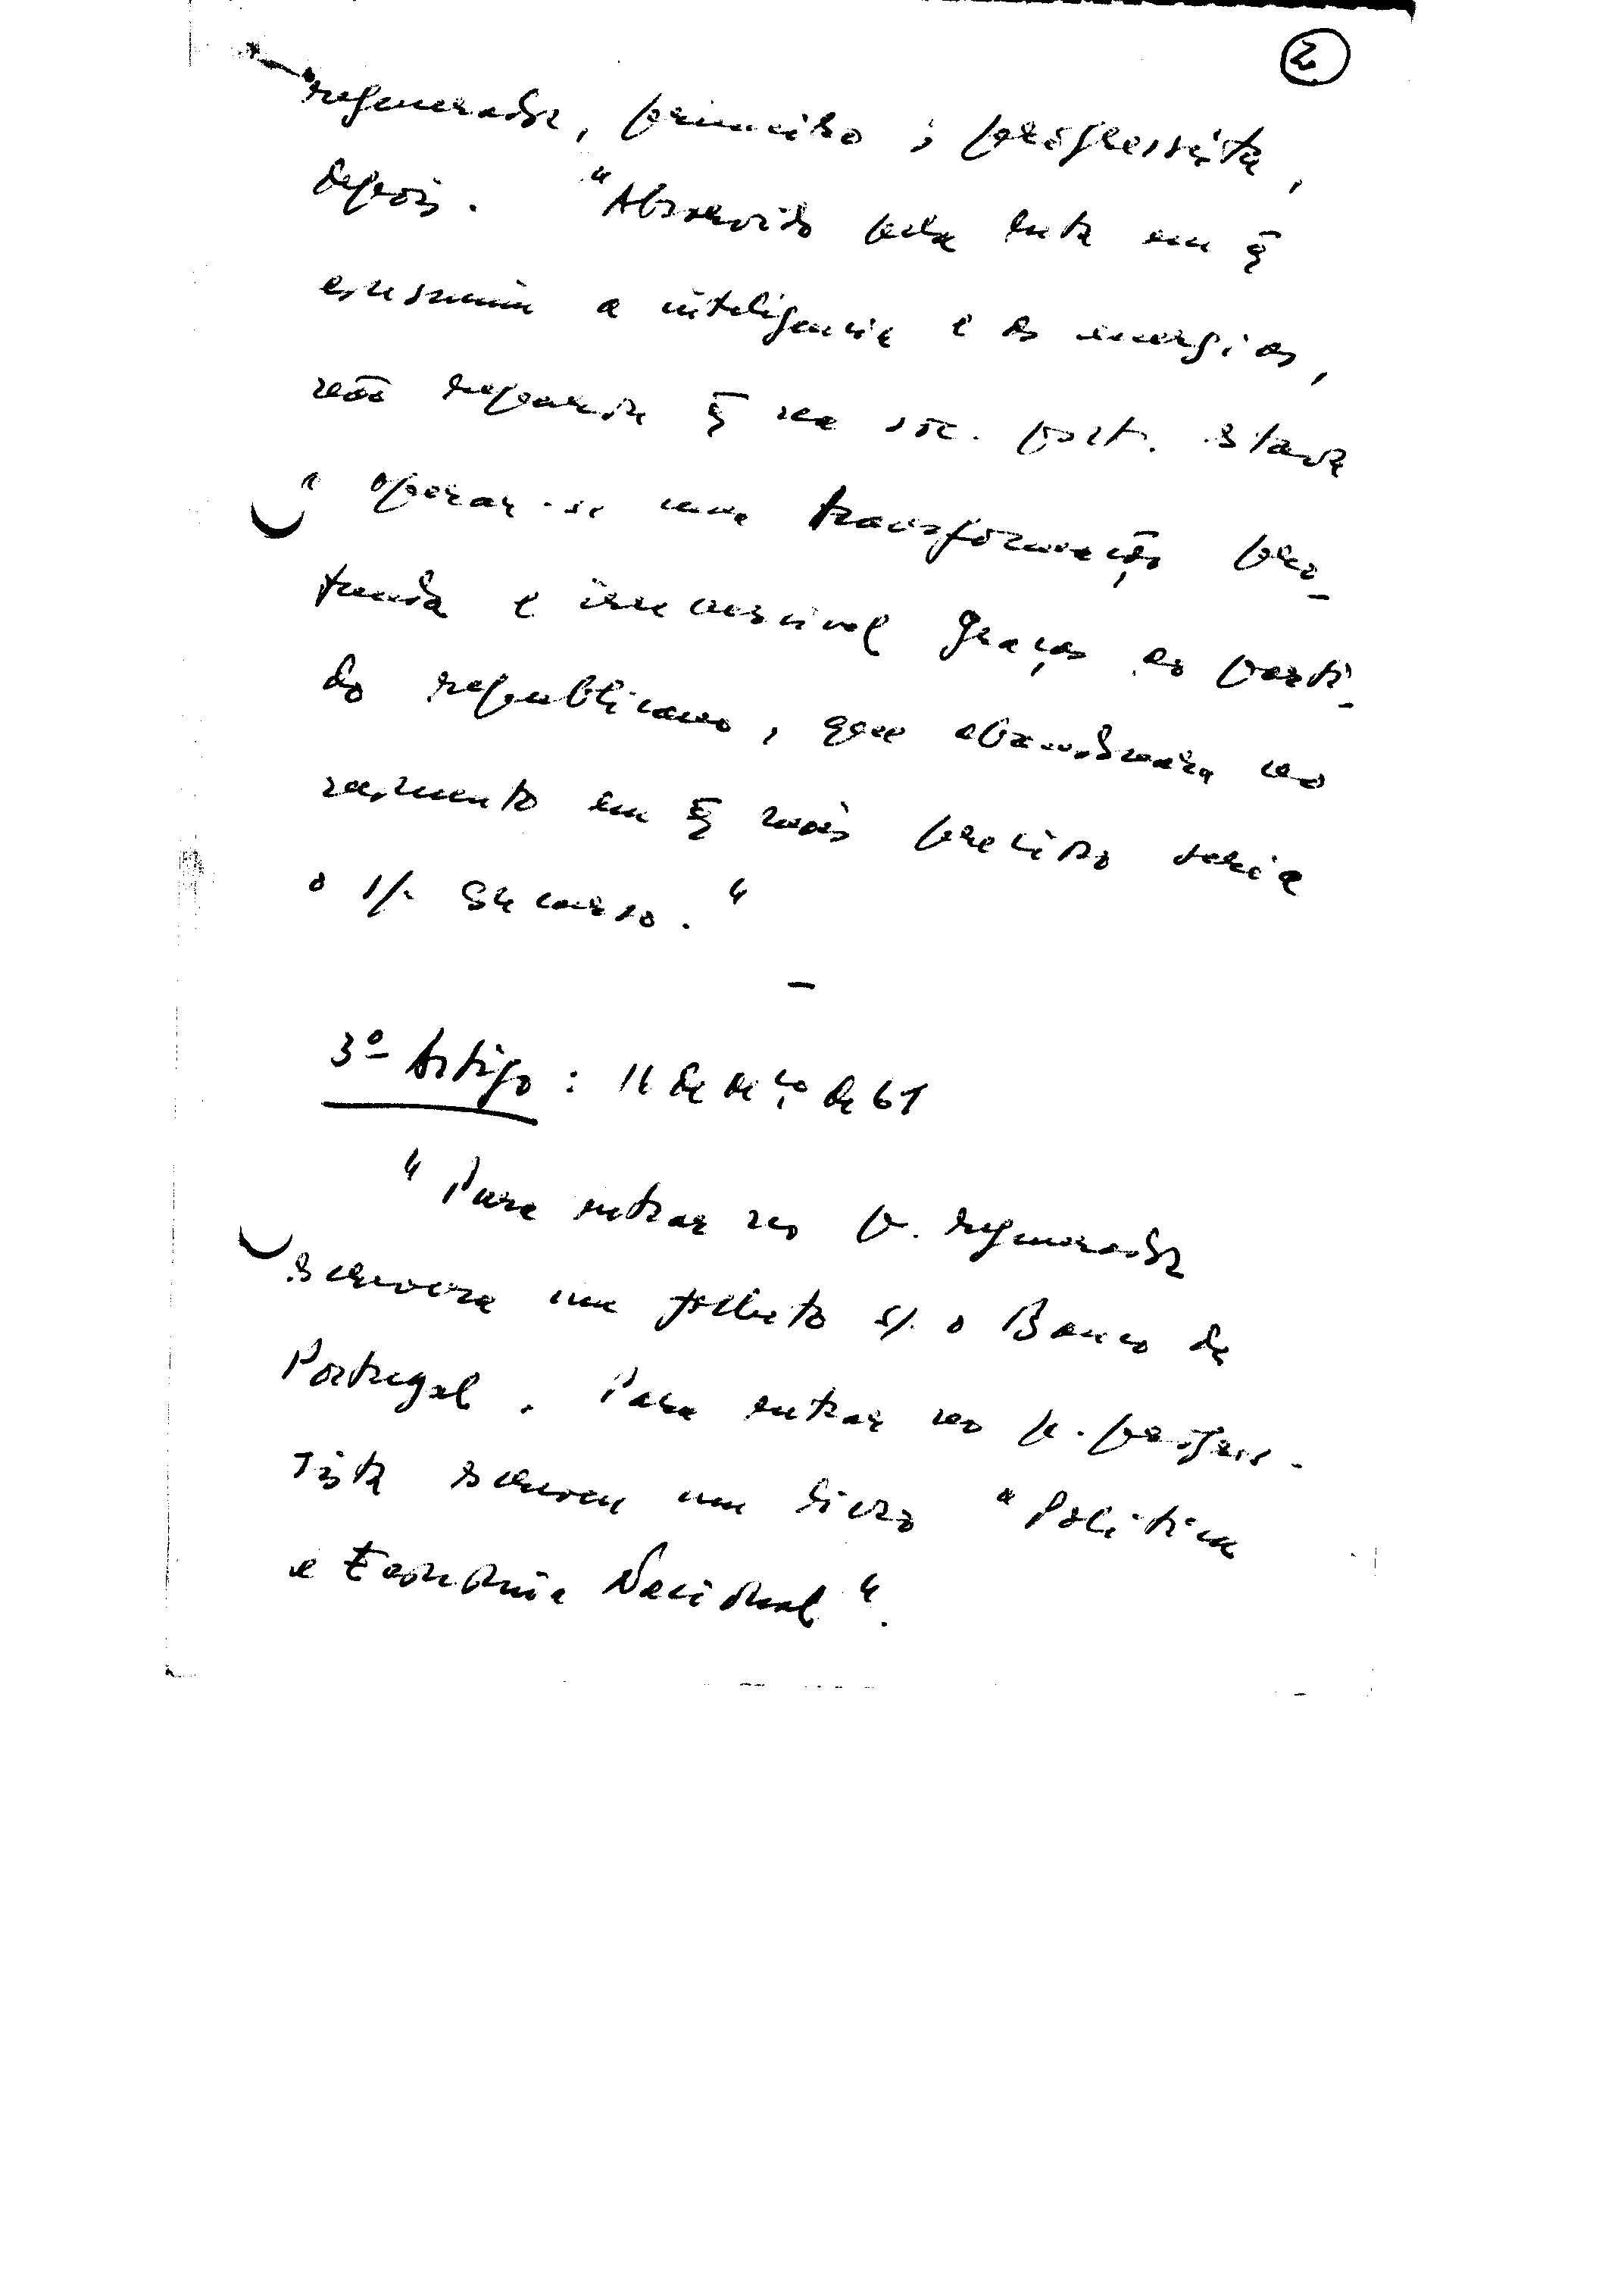 2
regenerador, primeiro ; progressista,
depois. "Absorvido pela luta em q̃
consumia a inteligencia e as energias,
não reparou q̃ na soc. port. estava
a operar-se uma transformação pro-
funda e irreversivel graças ao parti-
do republicano, que abandonara no
momento em q̃ mais preciso seria
o s/. concurso."
—
3º Artigo : 11 de de de 61
"Para entrar no p. regenerador
escrevera um folheto s/. o Banco de
Portugal. Para entrar no p. progres-
sista escreveu um livro "Politica
e Economia Nacional".